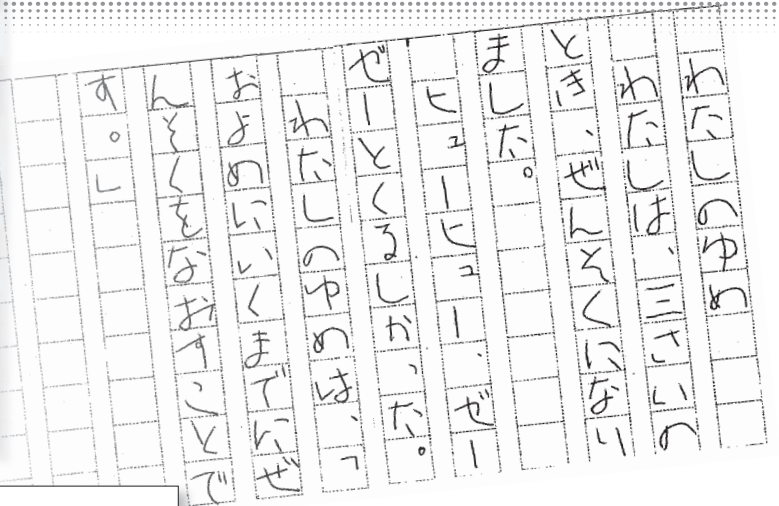 わたしのゆめ
わたしは、三さいの
とき、ぜんそくになり
ました。
ヒューヒュー、ゼー
ゼーとくるしかった。
わたしのゆめは、「
およめにいくまでにぜ
んそくをなおすことで
す。」